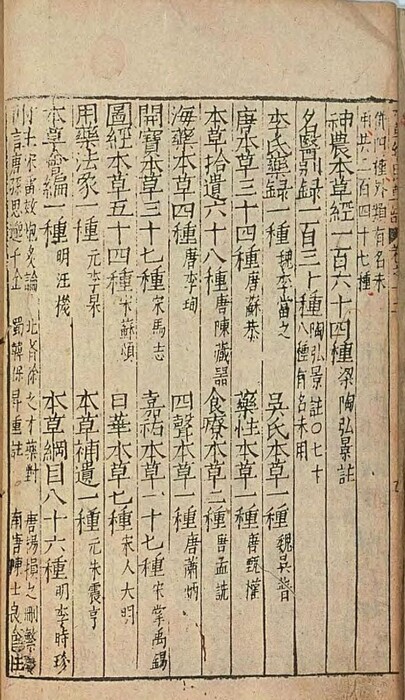 神農本草經一百六十四種 梁陶弘景註
名醫別錄一百三十種 陶弘景註〇七十八種有名未用
李氏藥錄一種 魏李當之 吳氏本草一種 魏吳普
唐本草三十四種 唐蘇恭 藥性本草一種 唐甄權
本草拾遺六十八種 唐陳藏器 食療本草二種 唐孟詵
海藥本草四種 唐李珣 四聲本草一種 唐蕭炳
開寶本草三十七種 宋馬志 嘉祐本草一十七種 宋掌禹錫
圖經本草五十四種 宋蘇頌 日華本草七種 宋人大明
用藥法象一種 元李杲 本草補遺一種 元朱震亨
本草會編一種 明汪機 本草綱目八十六種 明李時珍
宋雷斅炮炙論 北齊徐之才藥對 唐楊損之刪繁
唐孫思邈千金 蜀韓保昇重註 南唐陳士良食性